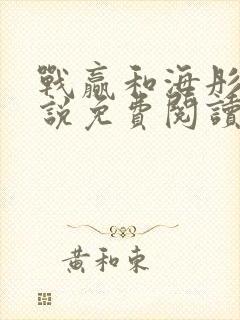 戰贏和海彤
說免費閱讀
黃和東